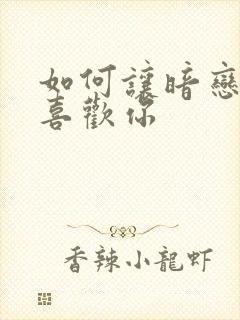 如何讓暗戀
喜歡你
香辣小龍虾